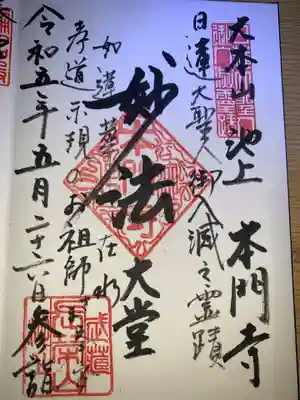 大本山 池上 本門寺
日蓮大聖人御入滅之霊蹟
妙法 大堂
如蓮華在水
孝道示現のお祖師さま
令和五年五月二十六日参詣